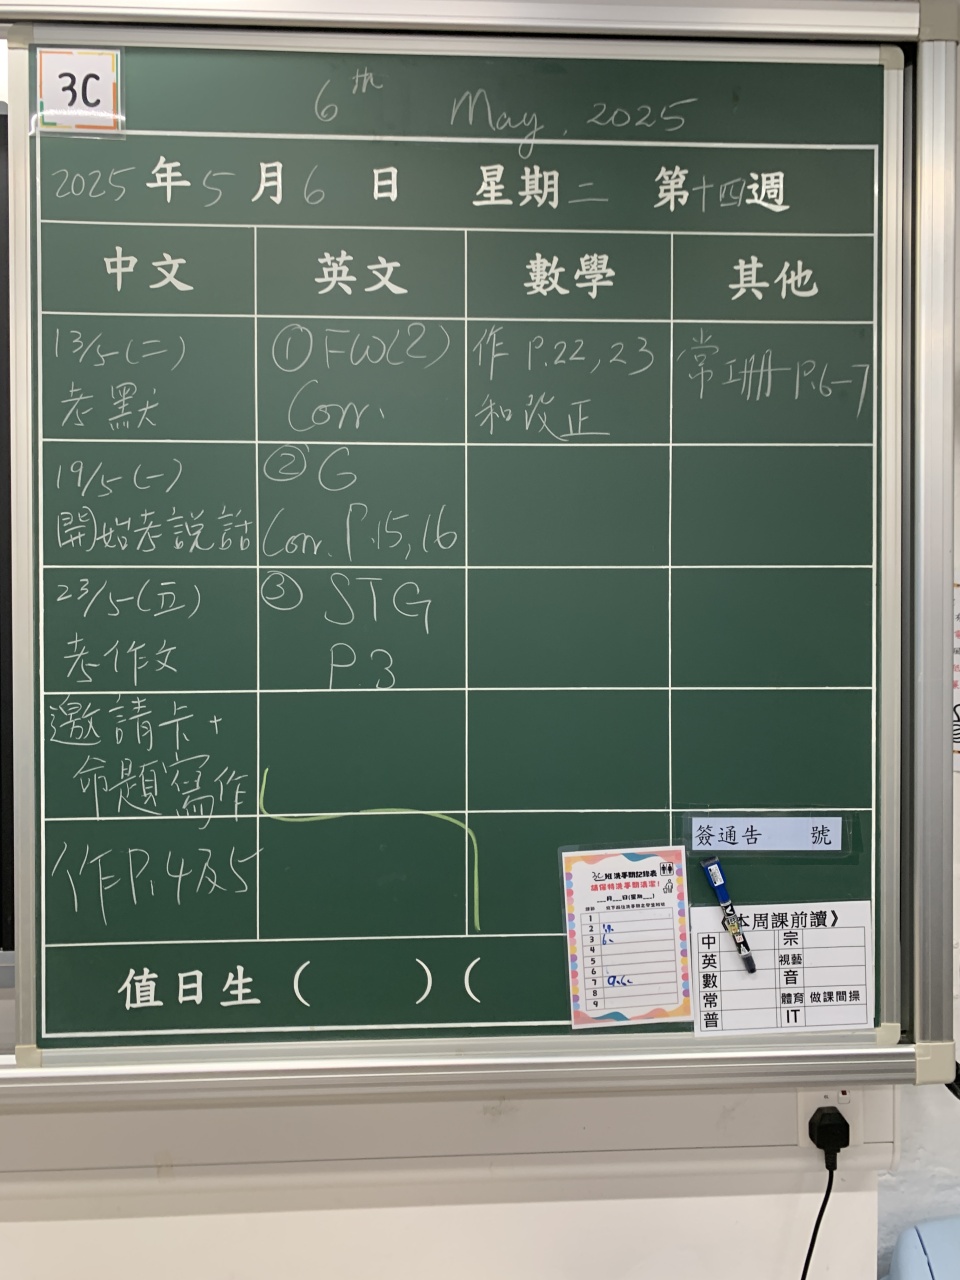 3C
6th May, 2025
2025年5月6日 星期二 第十四週
中文 英文 數學 其他
13/5(二)
考默
① FW(2)
Corr.
作 P.22,23
和改正
P.6-7
19/5(一)
開始考説話
② G
Corr. P.15,16
23/5(五)
考作文
③ STG
P.3
邀請卡+
命題寫作
作P.4及5
簽通告 號
值日生( )(
3C班洗手間記錄表
請保持洗手間清潔!
月 日(星期 )
1
2
3
4
5
6
7
8
9
本周課前讀》
中 宗
英 視藝
數 音
常 體育 做課間操
普 IT